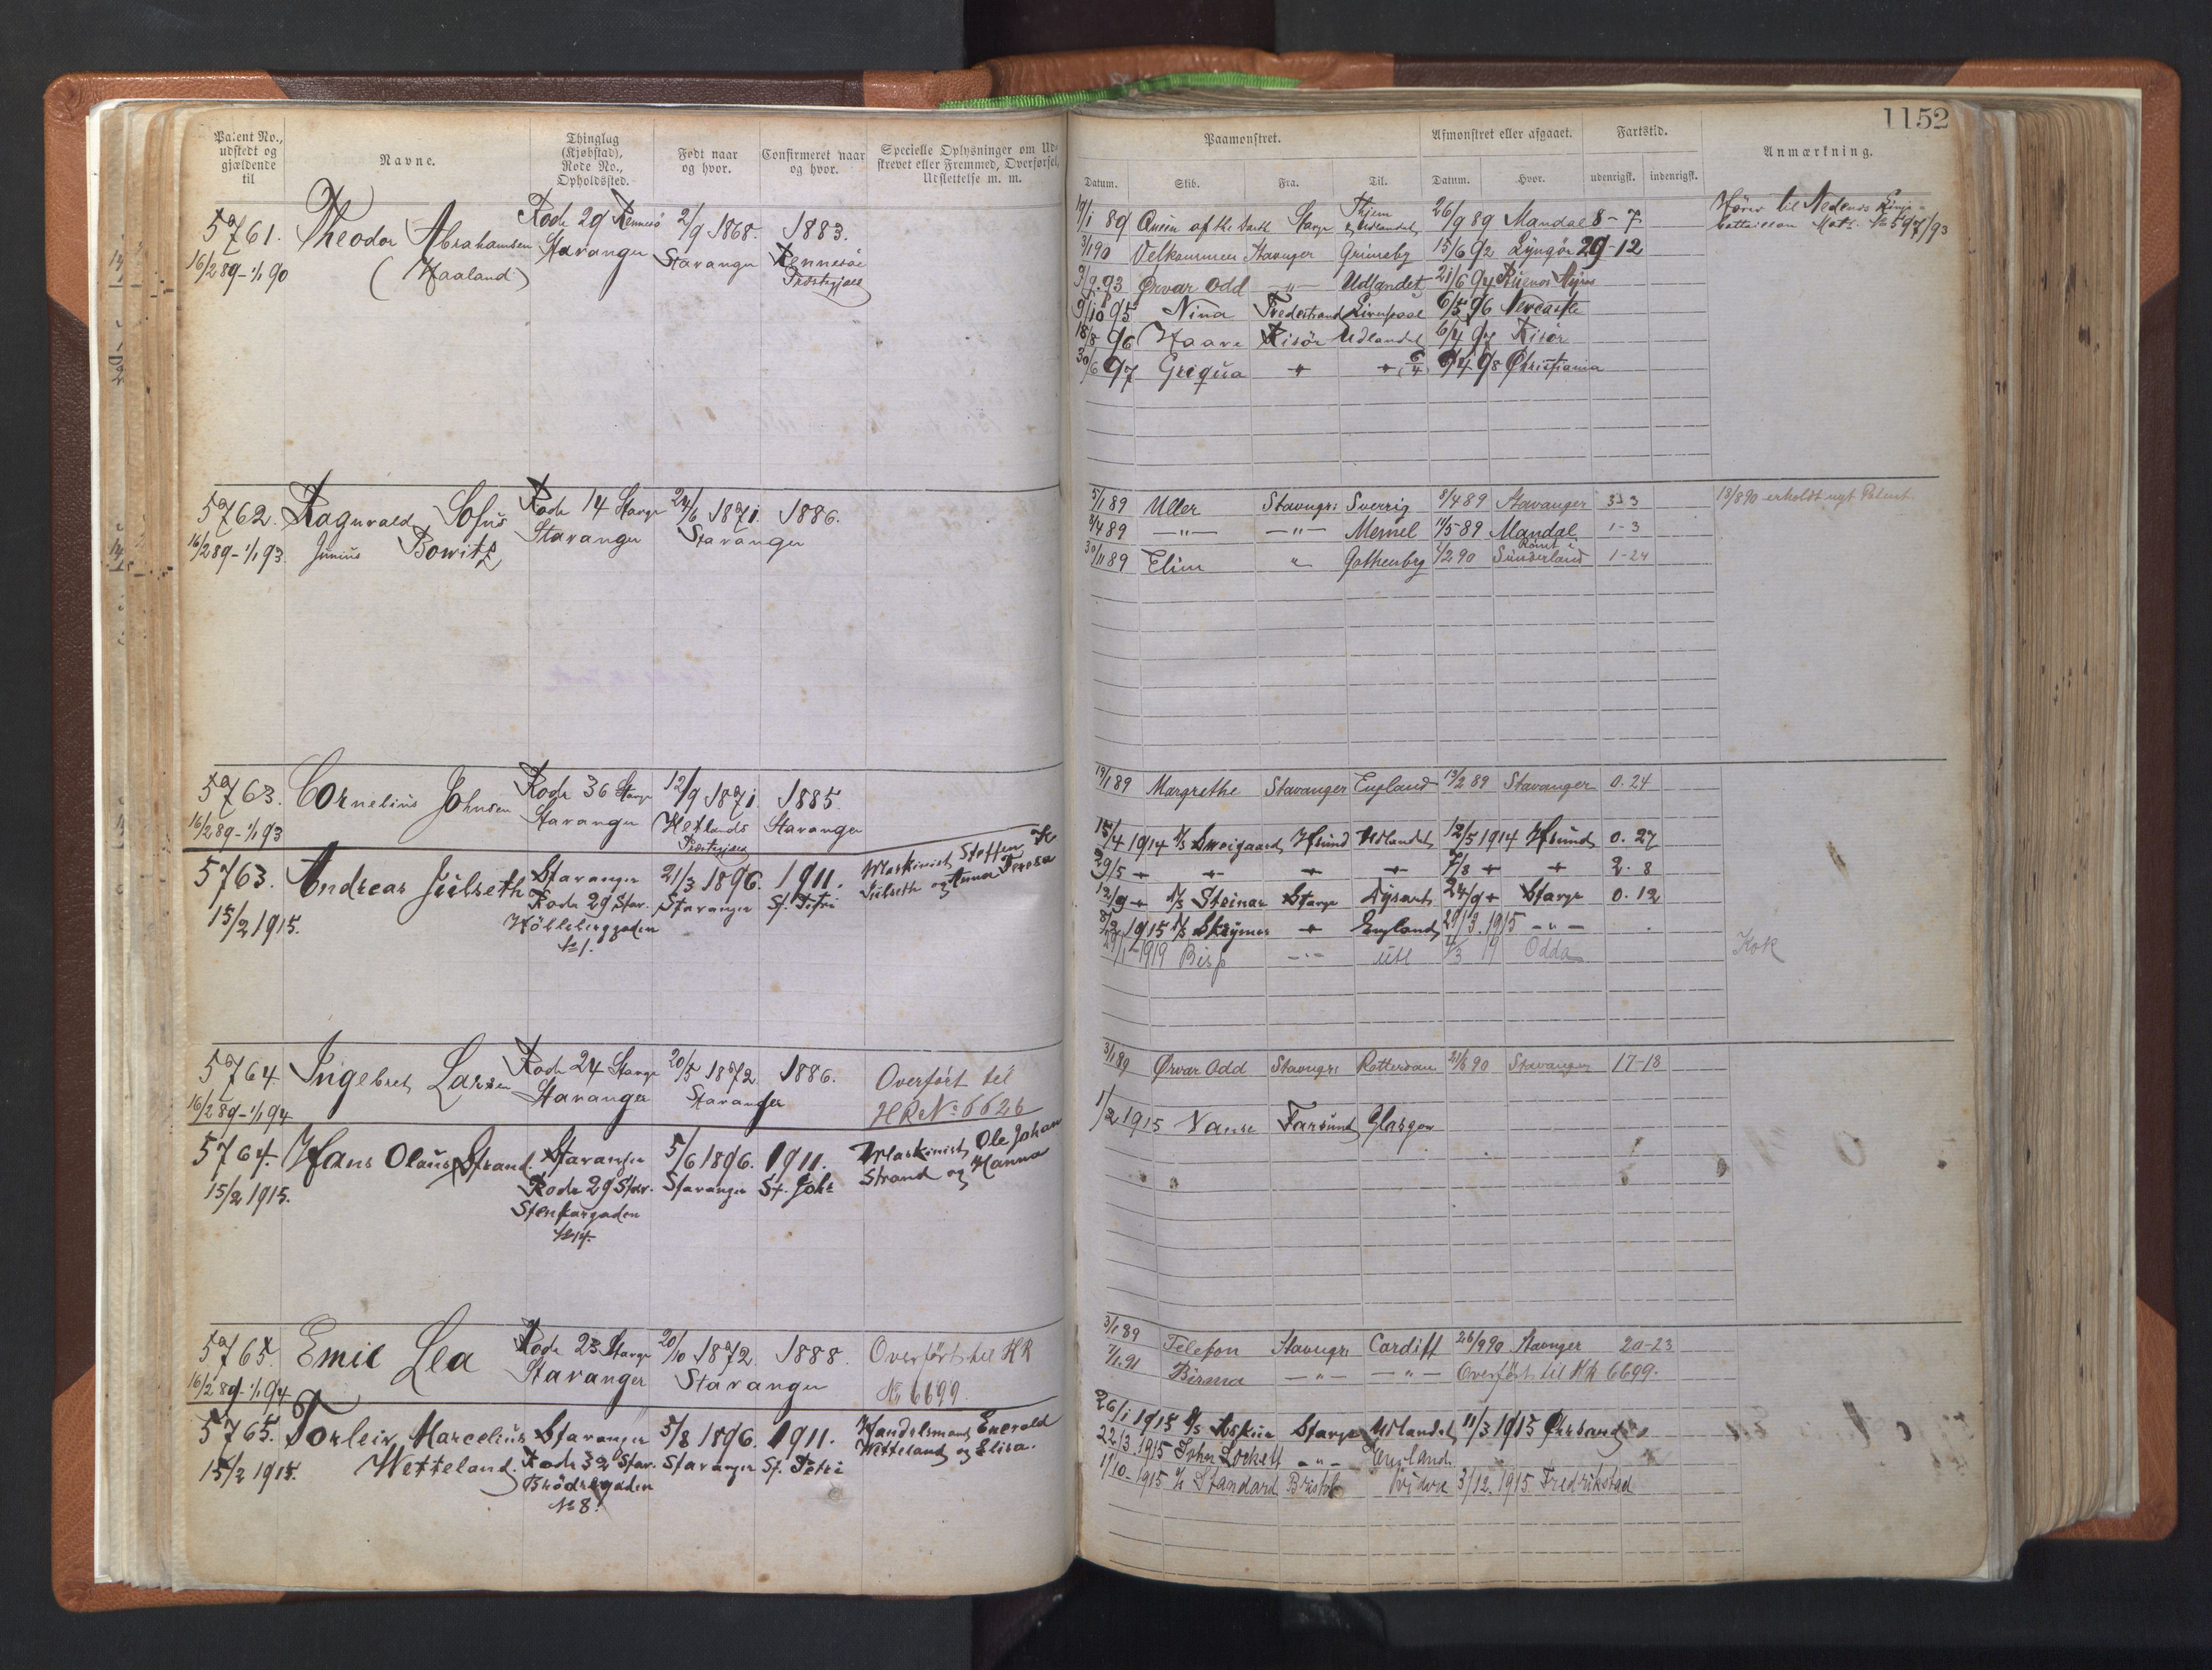 1152
Patent No., udstedt og gjældende til
Navne.
Thinglag (Kjøbstad), Rode No., Opholdssted.
Født naar og hvor.
Confirmeret naar og hvor.
Specielle Oplysninger om Udskrevet eller Fremmed, Overførsel, Udslettelse m. m.
Paamonstret.
Afmonstret eller afgaaet.
Fartstid.
Anmærkning.
Datum. Skib. Fra. Til. Datum. Hvor. udenrigsk. indenrigsk.
5761. Theodor Abrahamsen Rode 29 Rennesø 2/9 1868. 1883.
16/2 89 - 1/1 90 (Haaland) Stavanger Stavanger Rennesøe Præstegjæld
19/1 89 Queen of the Stavgr 26/9 89 Mandal 8-7
3/1 90 Velkommen Stavanger Grimsby 15/6 92 Lyngør 29-12
Ørvar Odd -"- Udlandet 21/6 94 Buenos Ayres
9/10 95 Nina Fredrikstrand Liverpool 6/5 96 Newcastle
18/8 96 Haare Risör Udlandet 6/4 97 Risör
30/6 97 Grequa 98 Christiania
Hører til Nedenes
5762. Ragnvald Sofus Rode 14 Stavgr 24/6 1871. 1886.
16/2 89 - 1/1 93. Junius Bowitz Stavanger Stavanger
5/1 89 Uller Stavngr: Sverrig 8/4 89 Stavanger 3-3
-"- -"- Memel 11/5 89 Mandal 1-3
30/11 89 Elim " Gothenbg 1/2 90 Rømt i Sunderland 1-24
13/8 90 erholdt nyt Patent.
5763. Cornelius Johnsen Rode 36 Stavgr 12/9 1871. 1885.
16/2 89 - 1/1 93 Stavanger Hetlands Præstegjæld Stavanger
19/1 89 Margrethe Stavanger England 13/2 89 Stavanger 0.24
5763. Andreas Julseth Stavanger 21/3 1896. 1911. Maskinist Steffen K
15/2 1915. Rode 29 Stav. Stavanger St. Petri Julseth og Anna Teresa
No 1.
15/4 1914 Sveigaard Hsund Udlandet 12/5 1914 Hsund 0.27
29/5 7/8 2.8
12/9 Steinar Stavgr 24/9 Stavgr 0.12
1915 Skrymer England 29/3. 1915 -"-
1919 Bisp -"- utl 19 Odda
Kok
5764. Ingebret Larsen Rode 24 Stavgr 20/5 1872. 1886. Overført til
16/2 89 - 1/1 94 Stavanger Stavanger HR No 6626
3/1 89 Ørvar Odd Stavngr: Rotterdam 21/6 90 Stavanger 17-18
5764. Hans Olaus Strand. Stavanger 5/6 1896. 1911. Maskinist Ole Johan
15/2 1915. Rode 29 Stav. Stavanger St. Joh: Strand og Hanna
Stenkargaden
No 14.
1/2 1915 Farsund Glasgow
5765. Emil Lea Rode 23 Stavgr 20/10 1872. 1888. Overført til HR
16/2 89 - 1/1 94 Stavanger Stavanger No 6699
3/1 89 Telefon Stavngr: Cardiff 26/9 90 Stavnger 20-23
7/1 91 Birma -"- -"- Overført til HR 6699.
5765. Torleiv Marcelius Stavanger 5/8 1896. 1911. Handelsmand Enevald
15/2 1915. Wetteland. Rode 32 Stav. Stavanger St. Petri Wetteland og Elisa.
Brödregaden
No 8.
26/1 1915 Askur Stavgr Udlandet 11/3 1915 Chrsand
22/3. 1915 John Lockett -"- England
11/10-1915 Standard Bristol videre 3/12. 1915 Fredrikstad